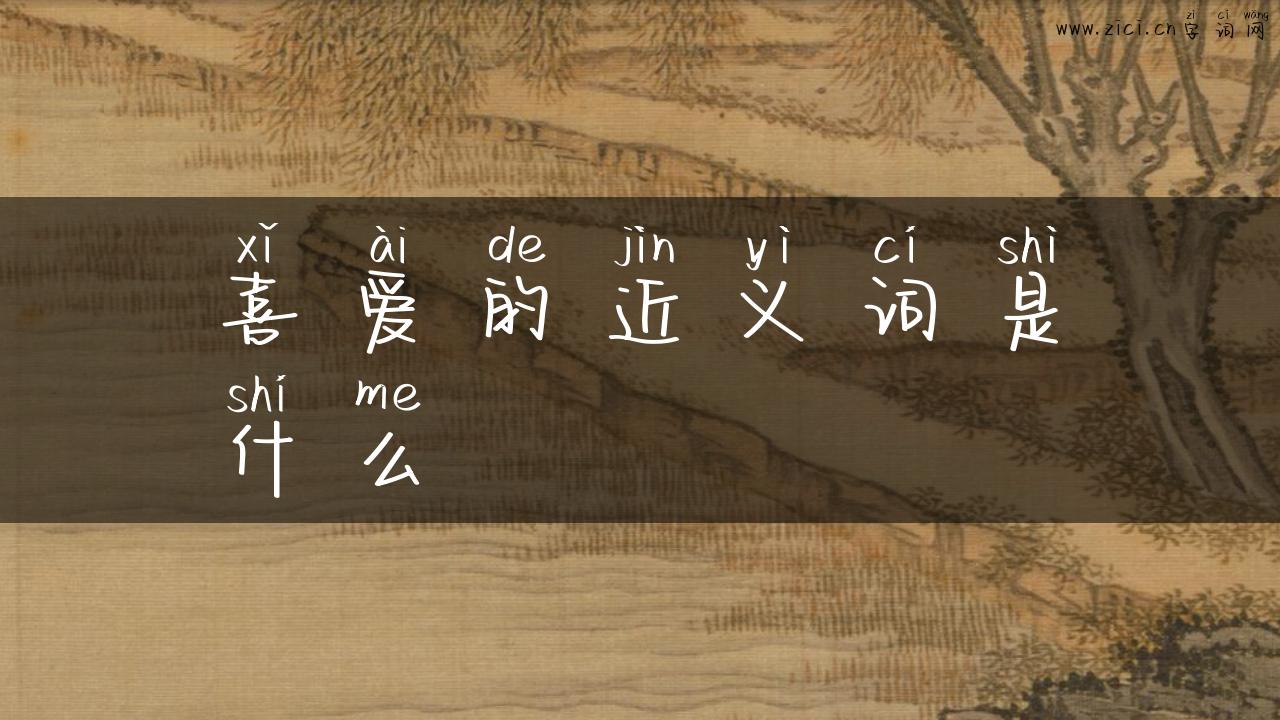 zì cí wǎng
www.zici.cn字词网
xǐ ài de jìn yì cí shì
喜爱的近义词是
shí me
什么